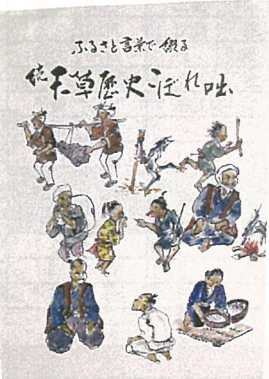 ふるさと言葉で綴る
続天草歴史こぼれ咄